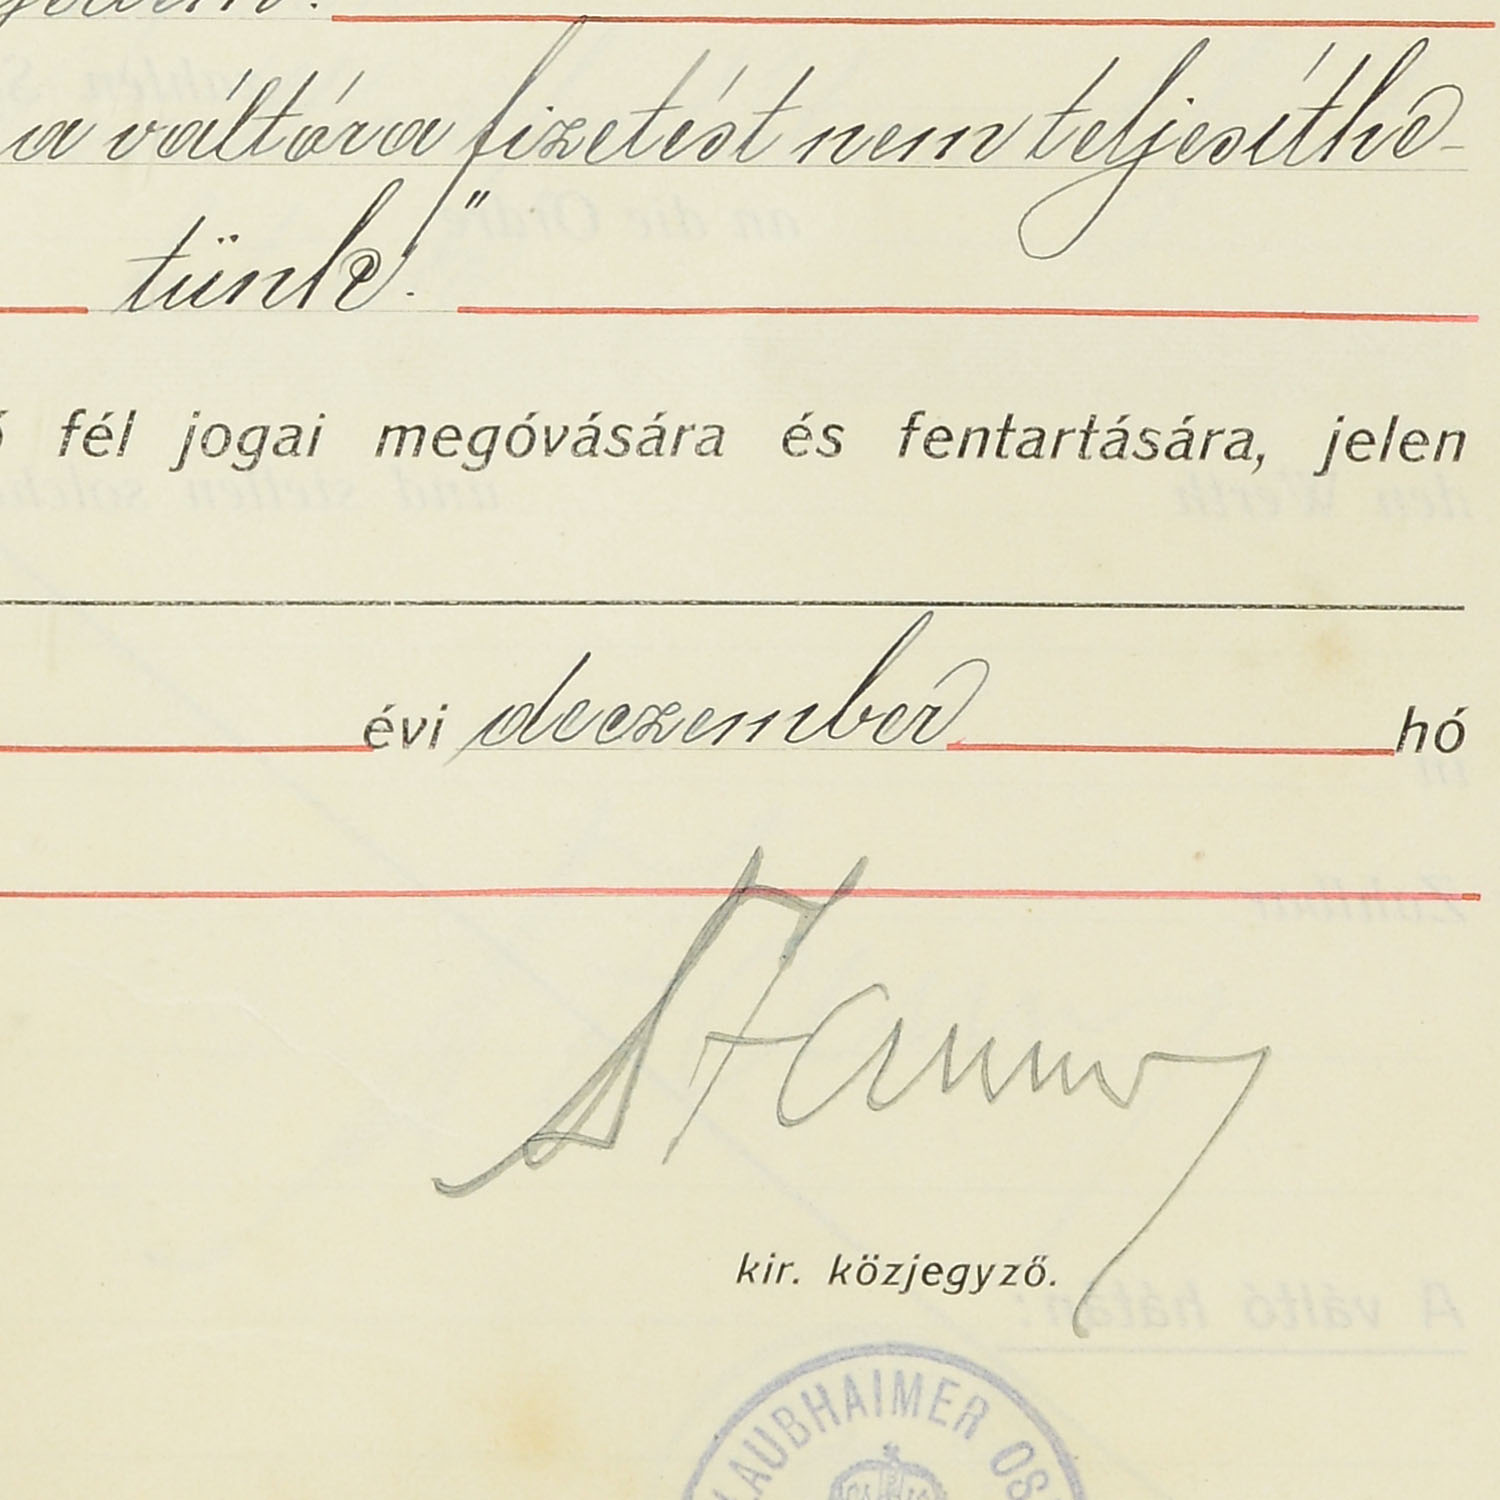 a váltóra fizetést nem teljesíthe-
tünk."
fél jogai megóvására és fentartására, jelen
évi deczember hó
kir. közjegyző.
LAUBHAIMER OS